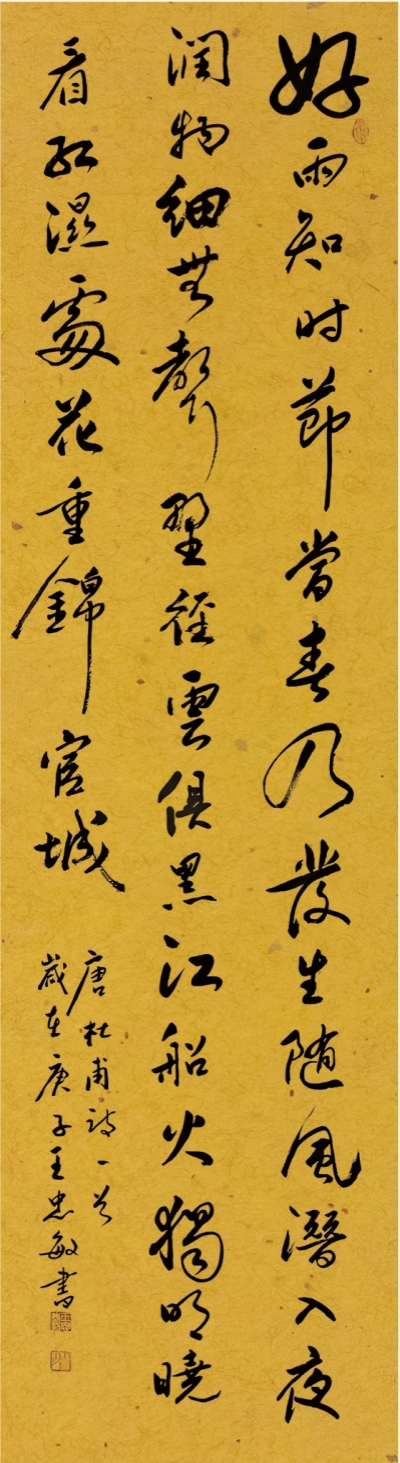 好雨知时節當春乃發生随風潛入夜
潤物細無聲野徑雲俱黑江船火獨明曉
看紅濕處花重錦官城
唐杜甫诗一首
歲在庚子王忠敏書